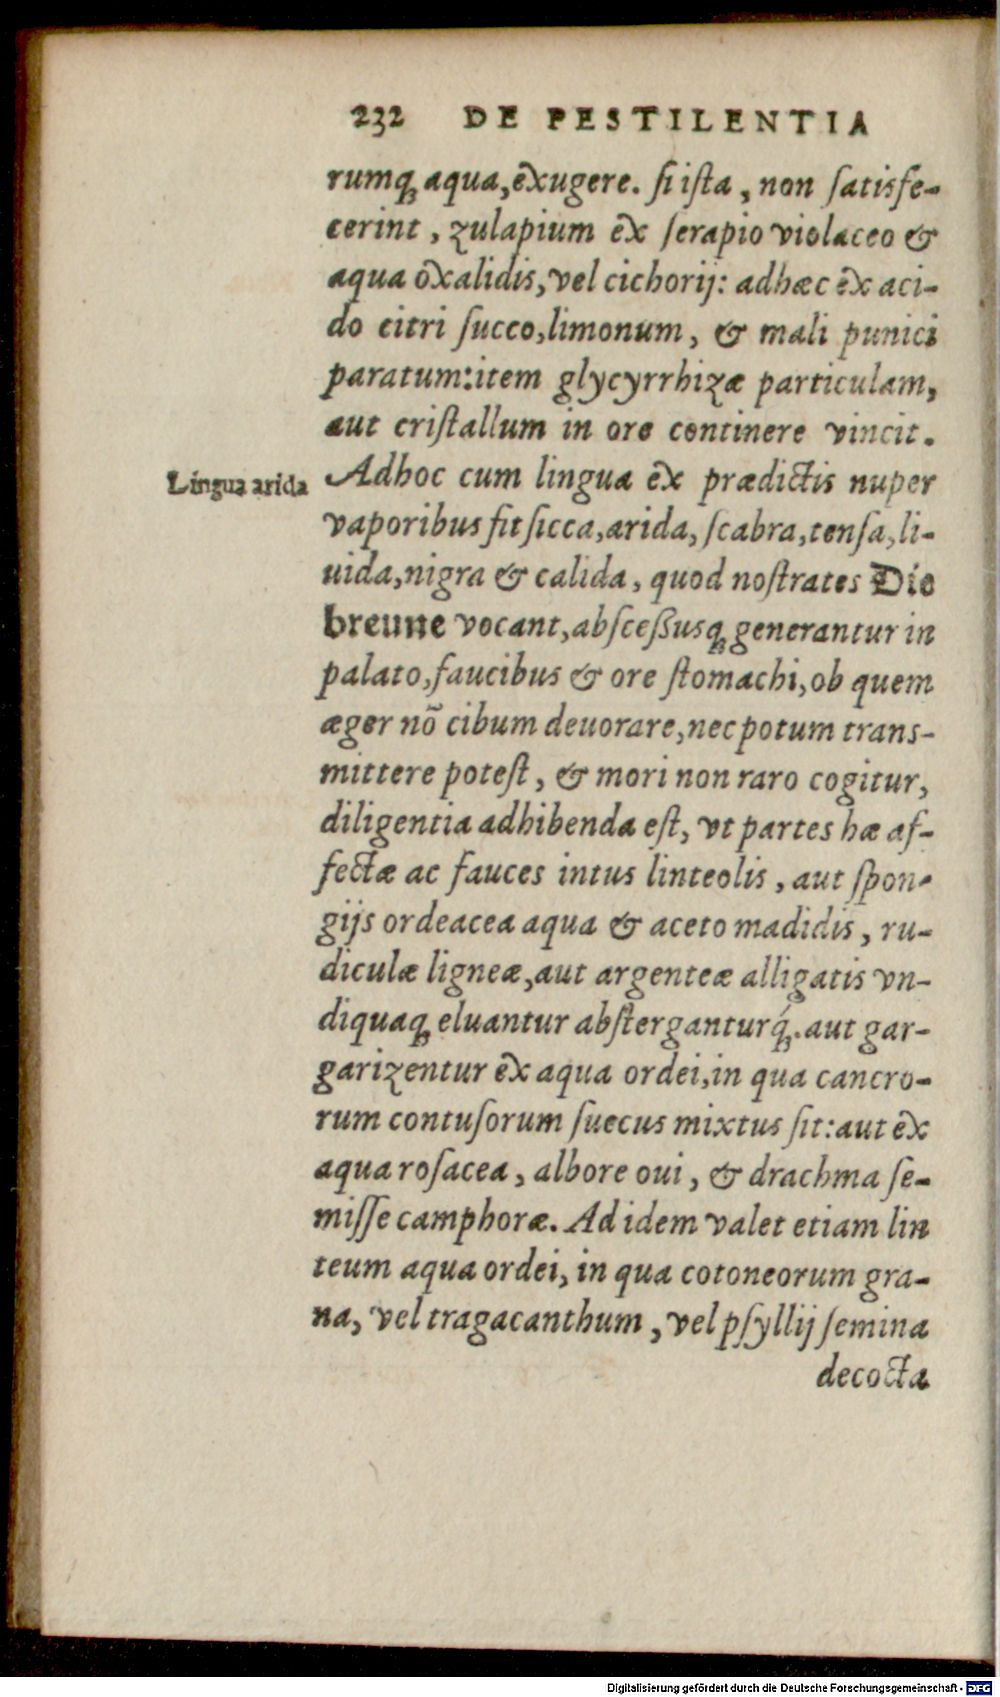 232 DE PESTILENTIA
rumq́; aqua, exugere. ſi iſta, non ſatisfe-
cerint, zulapium ex ſerapio violaceo &
aqua oxalidis, vel cichorij: adhæc ex aci-
do citri ſucco, limonum, & mali punici
paratum: item glycyrrhizæ particulam,
aut criſtallum in ore continere vincit.
Lingua arida
Adhoc cum lingua ex prædictis nuper
vaporibus fit ſicca, arida, ſcabra, tenſa, li-
uida, nigra & calida, quod noſtrates Die
breune vocant, abſceſſusq; generantur in
palato, faucibus & ore ſtomachi, ob quem
æger nõ cibum deuorare, nec potum trans-
mittere poteſt, & mori non raro cogitur,
diligentia adhibenda eſt, vt partes hæ af-
fectæ ac fauces intus linteolis, aut ſpon-
gijs ordeacea aqua & aceto madidis, ru-
diculæ ligneæ, aut argenteæ alligatis vn-
diquaq; eluantur abſterganturq́;. aut gar-
garizentur ex aqua ordei, in qua cancro-
rum contuſorum ſuecus mixtus ſit: aut ex
aqua roſacea, albore oui, & drachma ſe-
miſſe camphoræ. Ad idem valet etiam lin
teum aqua ordei, in qua cotoneorum gra-
na, vel tragacanthum, vel pſyllij ſemina
decocta
Digitalisierung gefördert durch die Deutsche Forschungsgemeinschaft - DFG